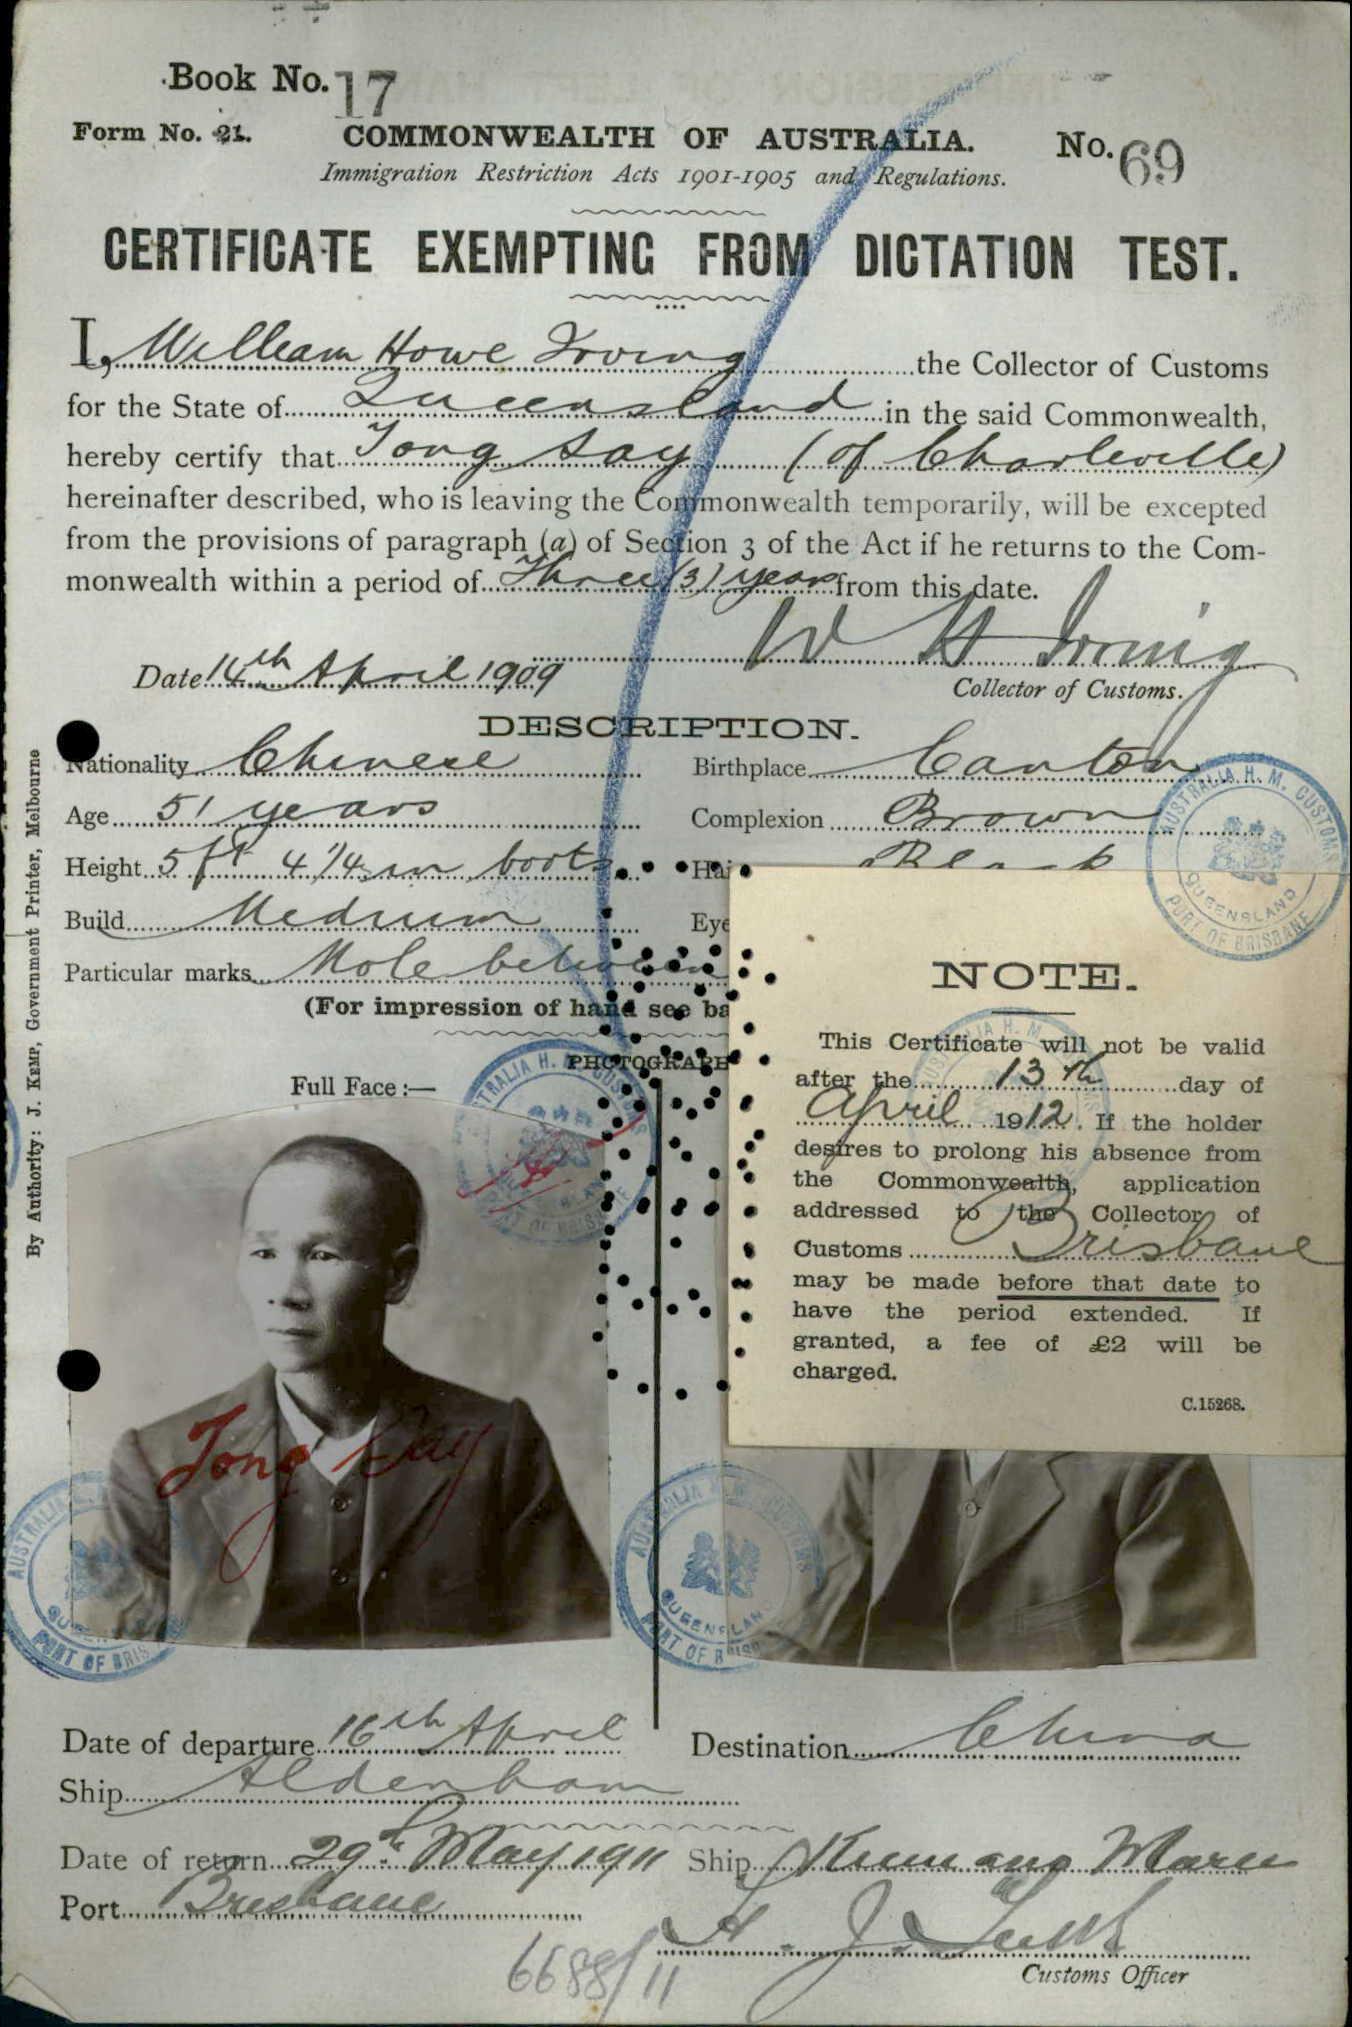 Book No. 17
Form No. 21.
COMMONWEALTH OF AUSTRALIA.
No. 69
Immigration Restriction Acts 1901-1905 and Regulations.
CERTIFICATE EXEMPTING FROM DICTATION TEST.
I, William Howe Irving the Collector of Customs
for the State of Queensland in the said Commonwealth,
hereby certify that Tong Say (of Charleville)
hereinafter described, who is leaving the Commonwealth temporarily, will be excepted
from the provisions of paragraph (a) of Section 3 of the Act if he returns to the Com-
monwealth within a period of Three (3) years from this date.
W H Irving
Date 14th April 1909
Collector of Customs.
DESCRIPTION.
Nationality Chinese
Birthplace Canton
Age 51 years
Complexion Brown
Height 5 ft 4 1/4 in boots
Hai Black
Build Medium
Eye
Particular marks Mole between
(For impression of hand see ba
PHOTOGRAPH
Full Face :—
Tong Say
NOTE.
This Certificate will not be valid
after the 13th day of
April 1912. If the holder
desires to prolong his absence from
the Commonwealth, application
addressed to the Collector of
Customs Brisbane
may be made before that date to
have the period extended. If
granted, a fee of £2 will be
charged.
C.15268.
Date of departure 16th April
Destination China
Ship Aldenham
Date of return 29th May 1911 Ship Kumano Maru
Port Brisbane
Customs Officer
6688/11
By Authority: J. KEMP, Government Printer, Melbourne
AUSTRALIA H. M. CUSTOMS
QUEENSLAND
PORT OF BRISBANE
AUSTRALIA H. M. CUSTOMS
PORT OF BRISBANE
AUSTRALIA H. M. CUSTOMS
QUEENSLAND
PORT OF BRIS
AUSTRALIA
QUEEN
PORT OF BRIS